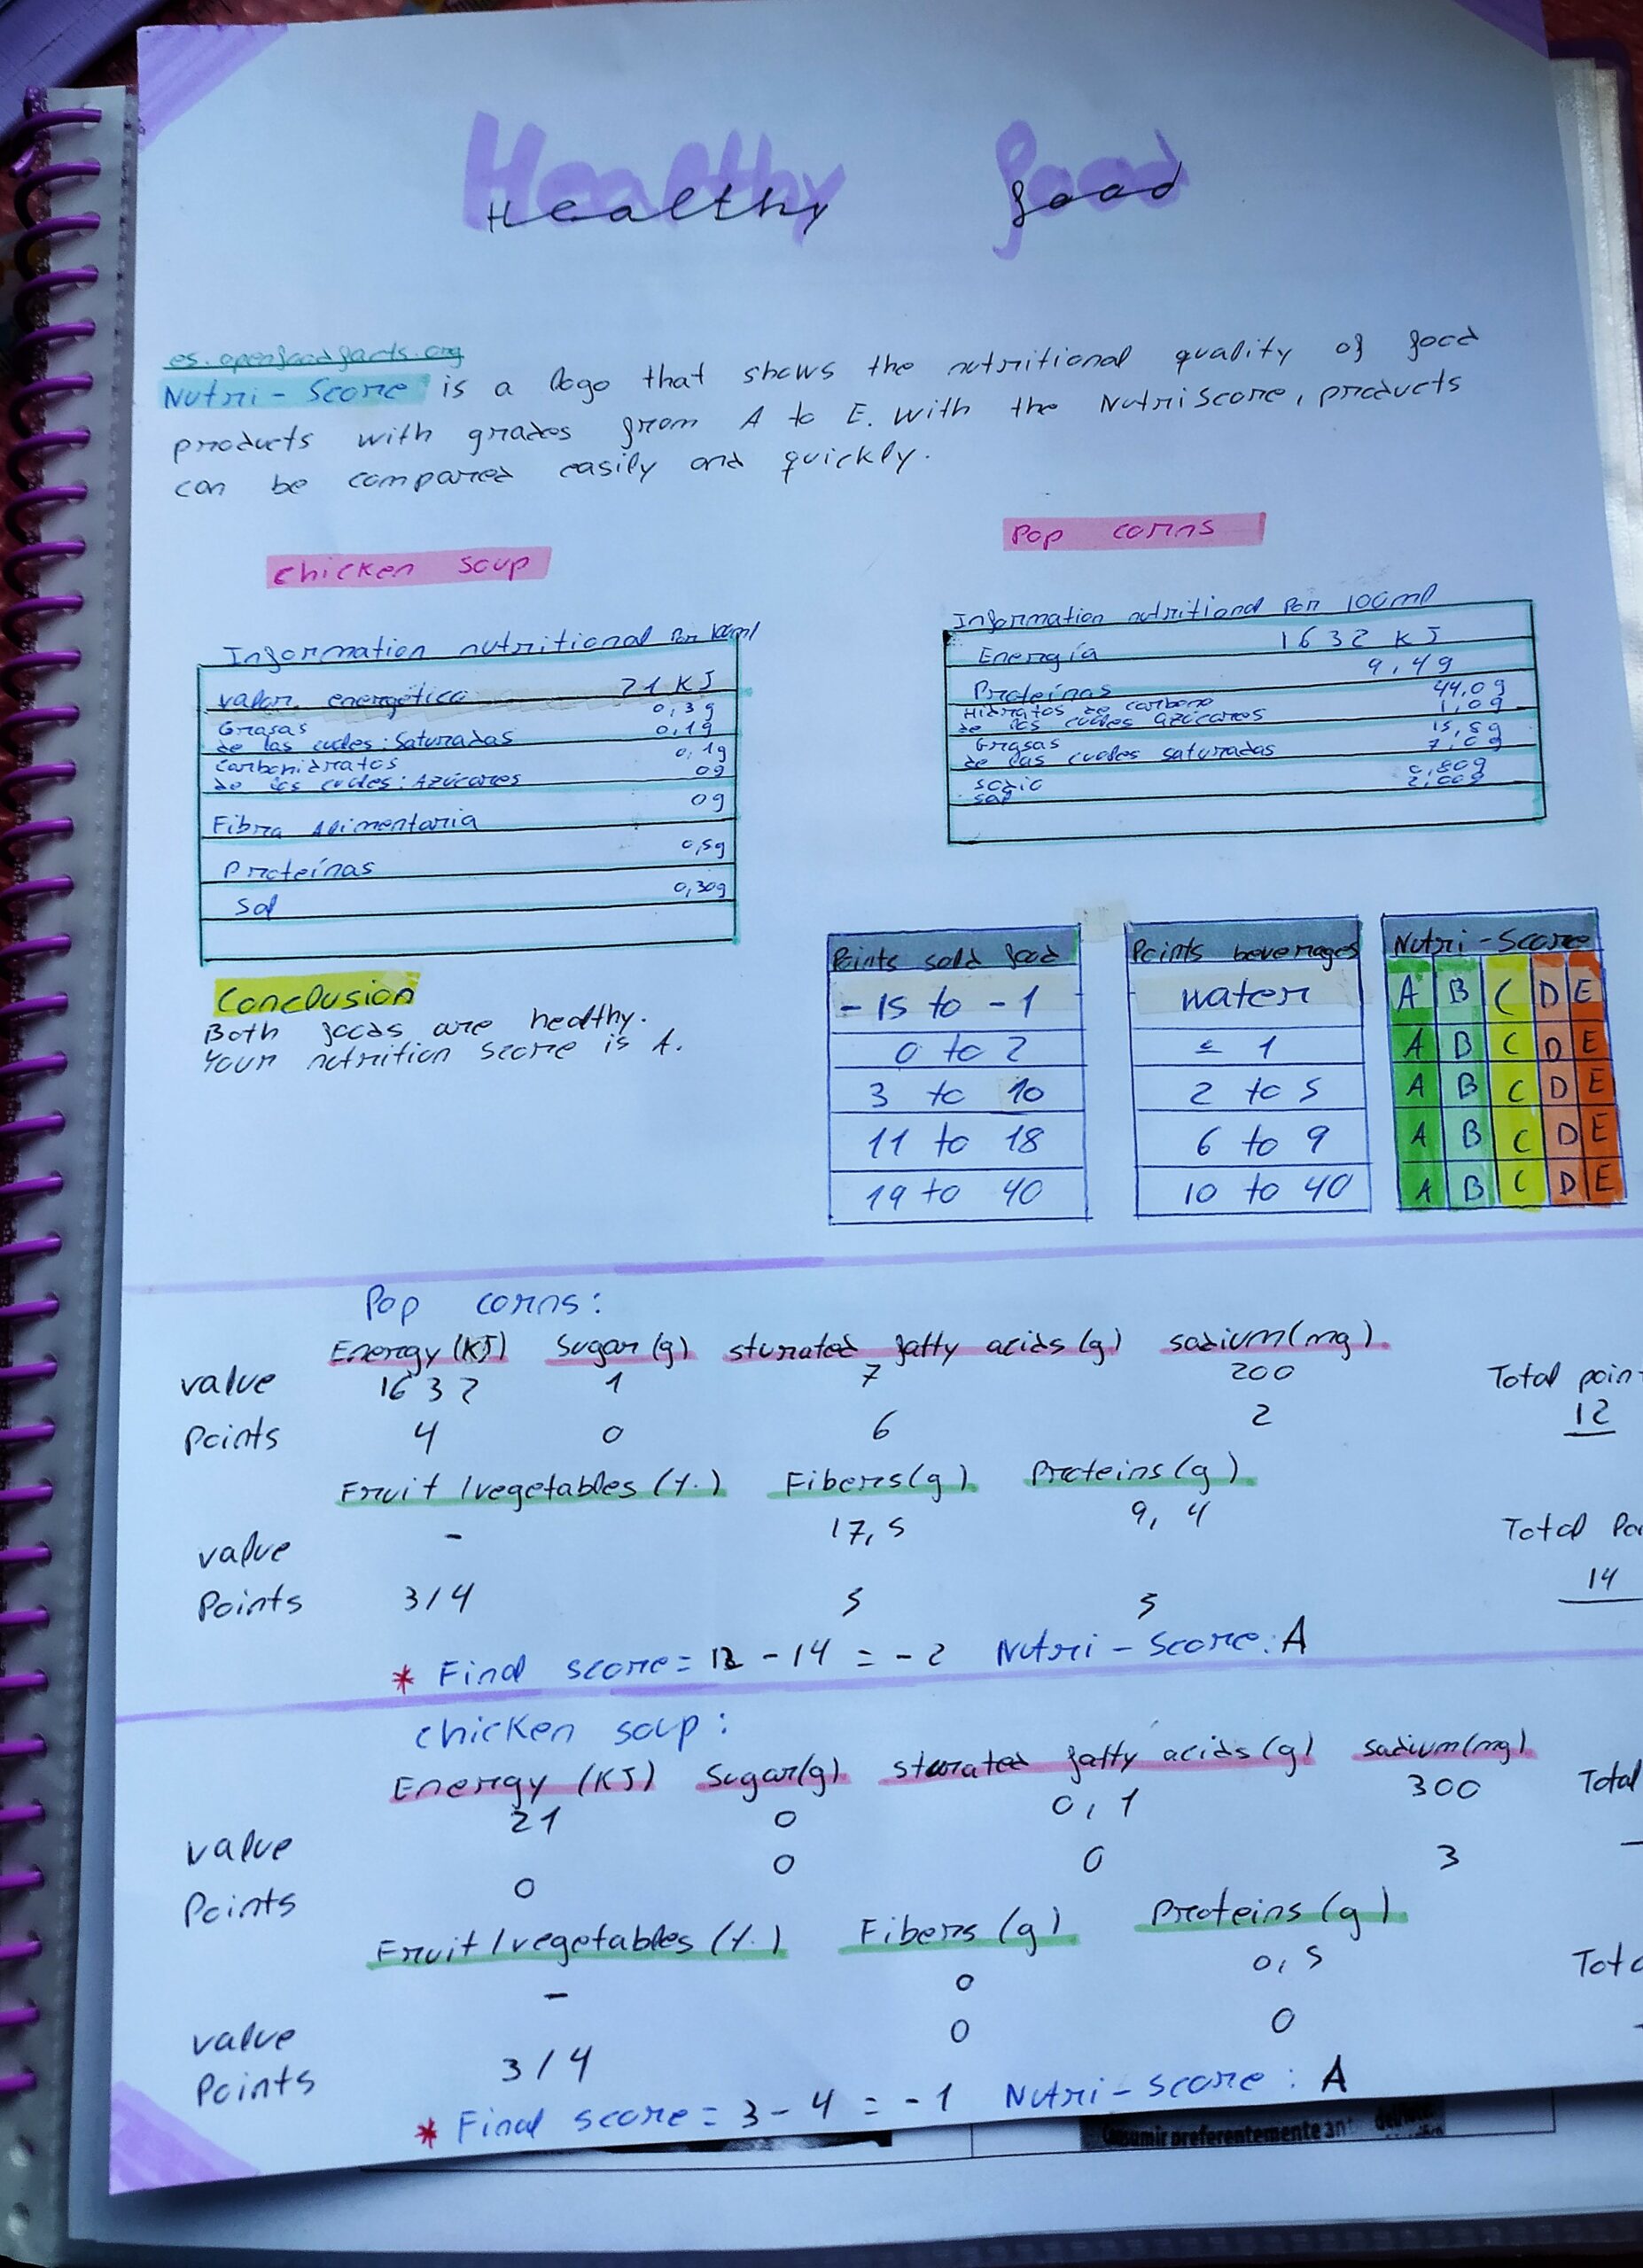 Healthy food
es.openfoodfacts.org
Nutri-Score is a logo that shows the nutritional quality of food
products with grades from A to E. With the NutriScore, products
can be compared easily and quickly.
chicken soup
Information nutritional Por 100ml
Valor energético 21 KJ
Grasas 0,3g
de las cuales: Saturadas 0,1g
Carbohidratos 0,1g
de los cuales: Azúcares 0g
Fibra Alimentaria 0g
Proteínas 0,5g
Sal 0,30g
Pop corns
Information nutritional Por 100ml
Energía 1632 KJ
Proteínas 9,4g
Hidratos de carbono 44,0g
de los cuales azúcares 1,0g
Grasas 15,8g
de las cuales saturadas 7,0g
sodio 0,80g
sal 2,00g
Conclusion
Both foods are healthy.
Your nutrition score is A.
Points solid food
-15 to -1
0 to 2
3 to 10
11 to 18
19 to 40
Points beverages
water
≤ 1
2 to 5
6 to 9
10 to 40
Nutri-Score
A B C D E
A B C D E
A B C D E
A B C D E
A B C D E
Pop corns:
Energy (KJ) Sugar (g) sturated fatty acids (g) sodium (mg)
value 1632 1 7 200 Total poin
Points 4 0 6 2 12
Fruit/vegetables (%) Fibers (g) Proteins (g)
value - 17,5 9,4 Total Po
Points 3/4 5 5 14
* Final score = 12 - 14 = -2 Nutri-Score: A
chicken soup:
Energy (KJ) Sugar (g) sturated fatty acids (g) sodium (mg)
value 21 0 0,1 300 Total
Points 0 0 0 3
Fruit/vegetables (%) Fibers (g) Proteins (g)
value - 0 0,5
Points 3/4 0 0
* Final score = 3 - 4 = -1 Nutri-score: A
preferentemente